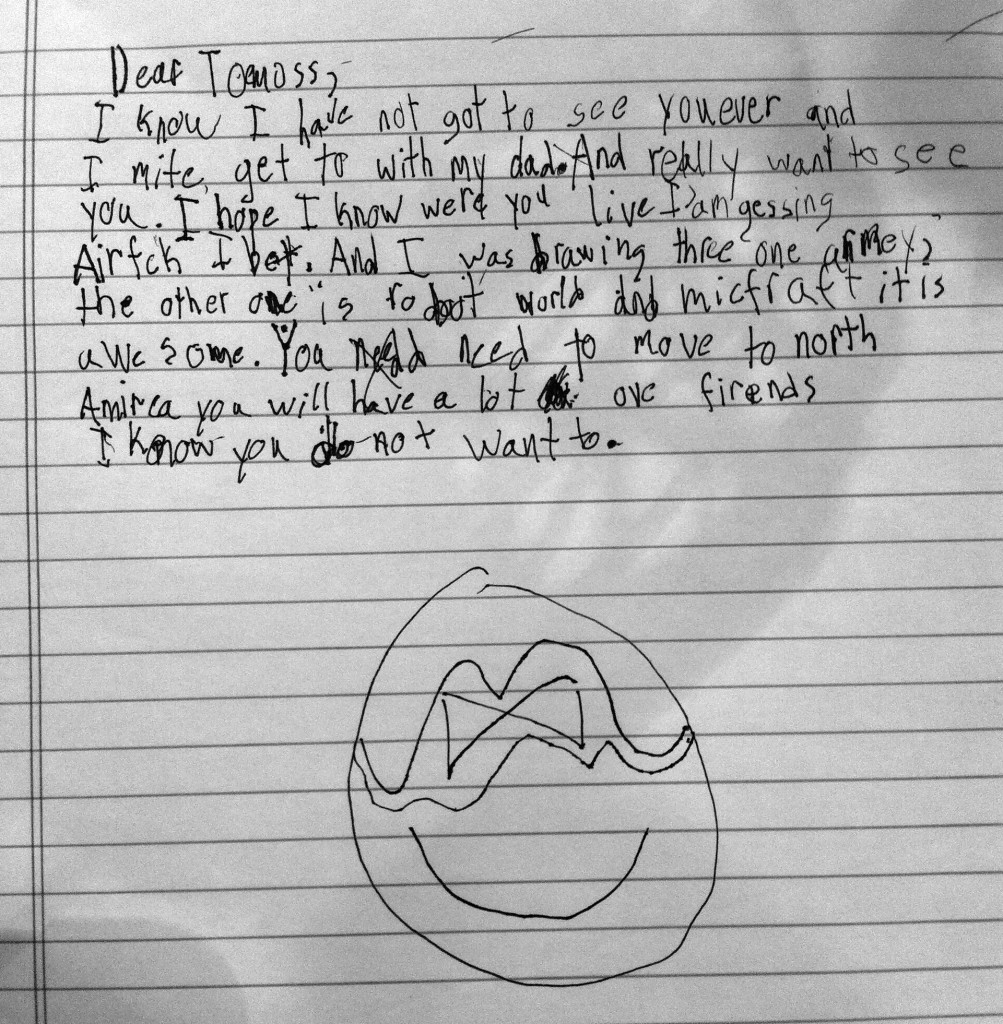 Dear Tomoss,
I know I have not got to see you ever and
I mite get to with my dad. And really want to see
you. I hope I know were you live I am gessing
Airfck I bet. And I was drawing three one armey,
the other one is robot world and micfraft it is
awesome. You need to move to north
Amirca you will have a lot ove firends
I know you do not want to.